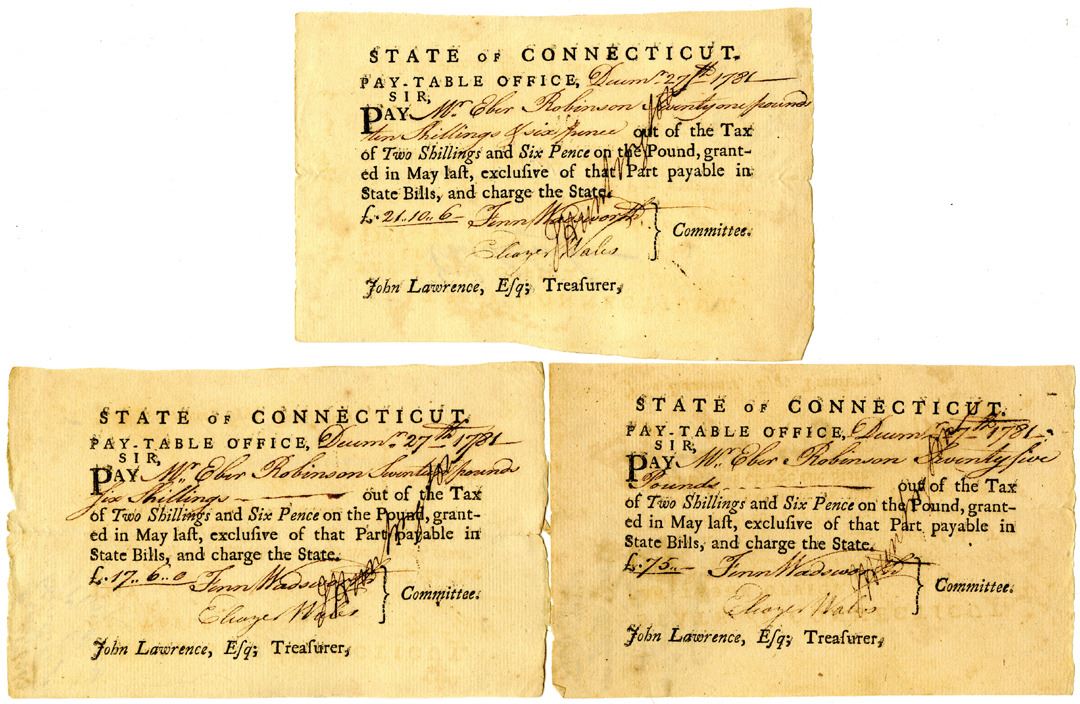 STATE OF CONNECTICUT.
PAY-TABLE OFFICE, Decemr. 27th 1781
SIR,
PAY Mr. Eber Robinson pounds
ten Shillings & six pence out of the Tax
of Two Shillings and Six Pence on the Pound, grant-
ed in May laſt, excluſive of that Part payable in
State Bills, and charge the State.
£. 21.. 10.. 6 Fenn Wadsworth
Eleazer Wales } Committee.
John Lawrence, Eſq; Treaſurer,
STATE OF CONNECTICUT.
PAY-TABLE OFFICE, Decemr. 27th 1781
SIR,
PAY Mr. Eber Robinson pounds
six Shillings out of the Tax
of Two Shillings and Six Pence on the Pound, grant-
ed in May laſt, excluſive of that Part payable in
State Bills, and charge the State.
£. 17.. 6.. 0 Fenn Wadsworth
Eleazer Wales } Committee.
John Lawrence, Eſq; Treaſurer,
STATE OF CONNECTICUT.
PAY-TABLE OFFICE, Decemr. 27th 1781
SIR,
PAY Mr. Eber Robinson Seventy five
Pounds out of the Tax
of Two Shillings and Six Pence on the Pound, grant-
ed in May laſt, excluſive of that Part payable in
State Bills, and charge the State.
£. 75.. Fenn Wadsworth
Eleazer Wales } Committee.
John Lawrence, Eſq; Treaſurer,